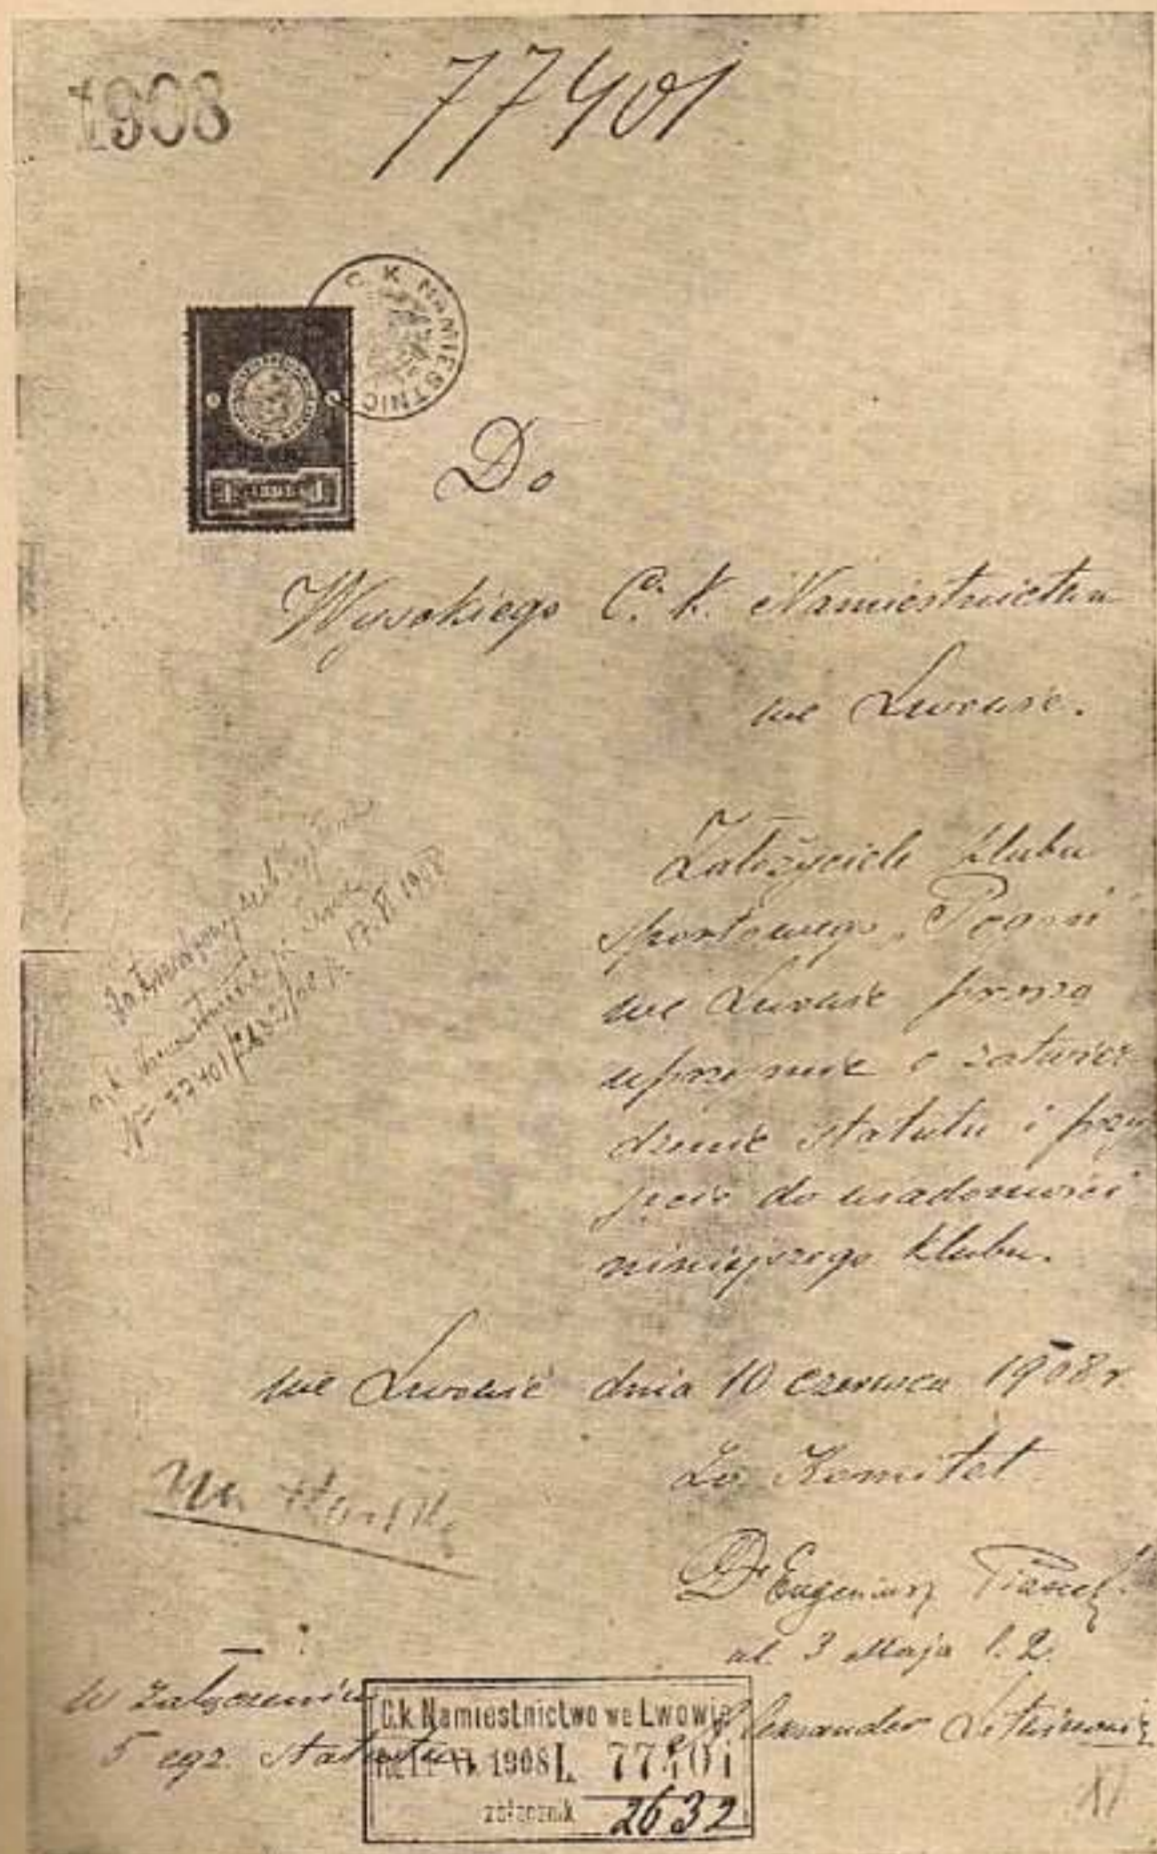 1908
77401
C. K. NAMIESTNIC
Do
Wysokiego C. K. Namiestnictwa
we Lwowie.
Założyciele klubu
sportowego „Pogoń"
we Lwowie proszą
uprzejmie o zatwier
dzenie statutu i przy
jęcie do wiadomości
niniejszego klubu.
we Lwowie dnia 10 czerwca 1908 r
Za Komitet
Dr Eugeniusz Piasecki
ul. 3 Maja l. 2.
Aleksander Litwinowicz
W załączeniu
5 egz. Statutu
C.k. Namiestnictwo we Lwowie
1908 L. 77401
załącznik 2632